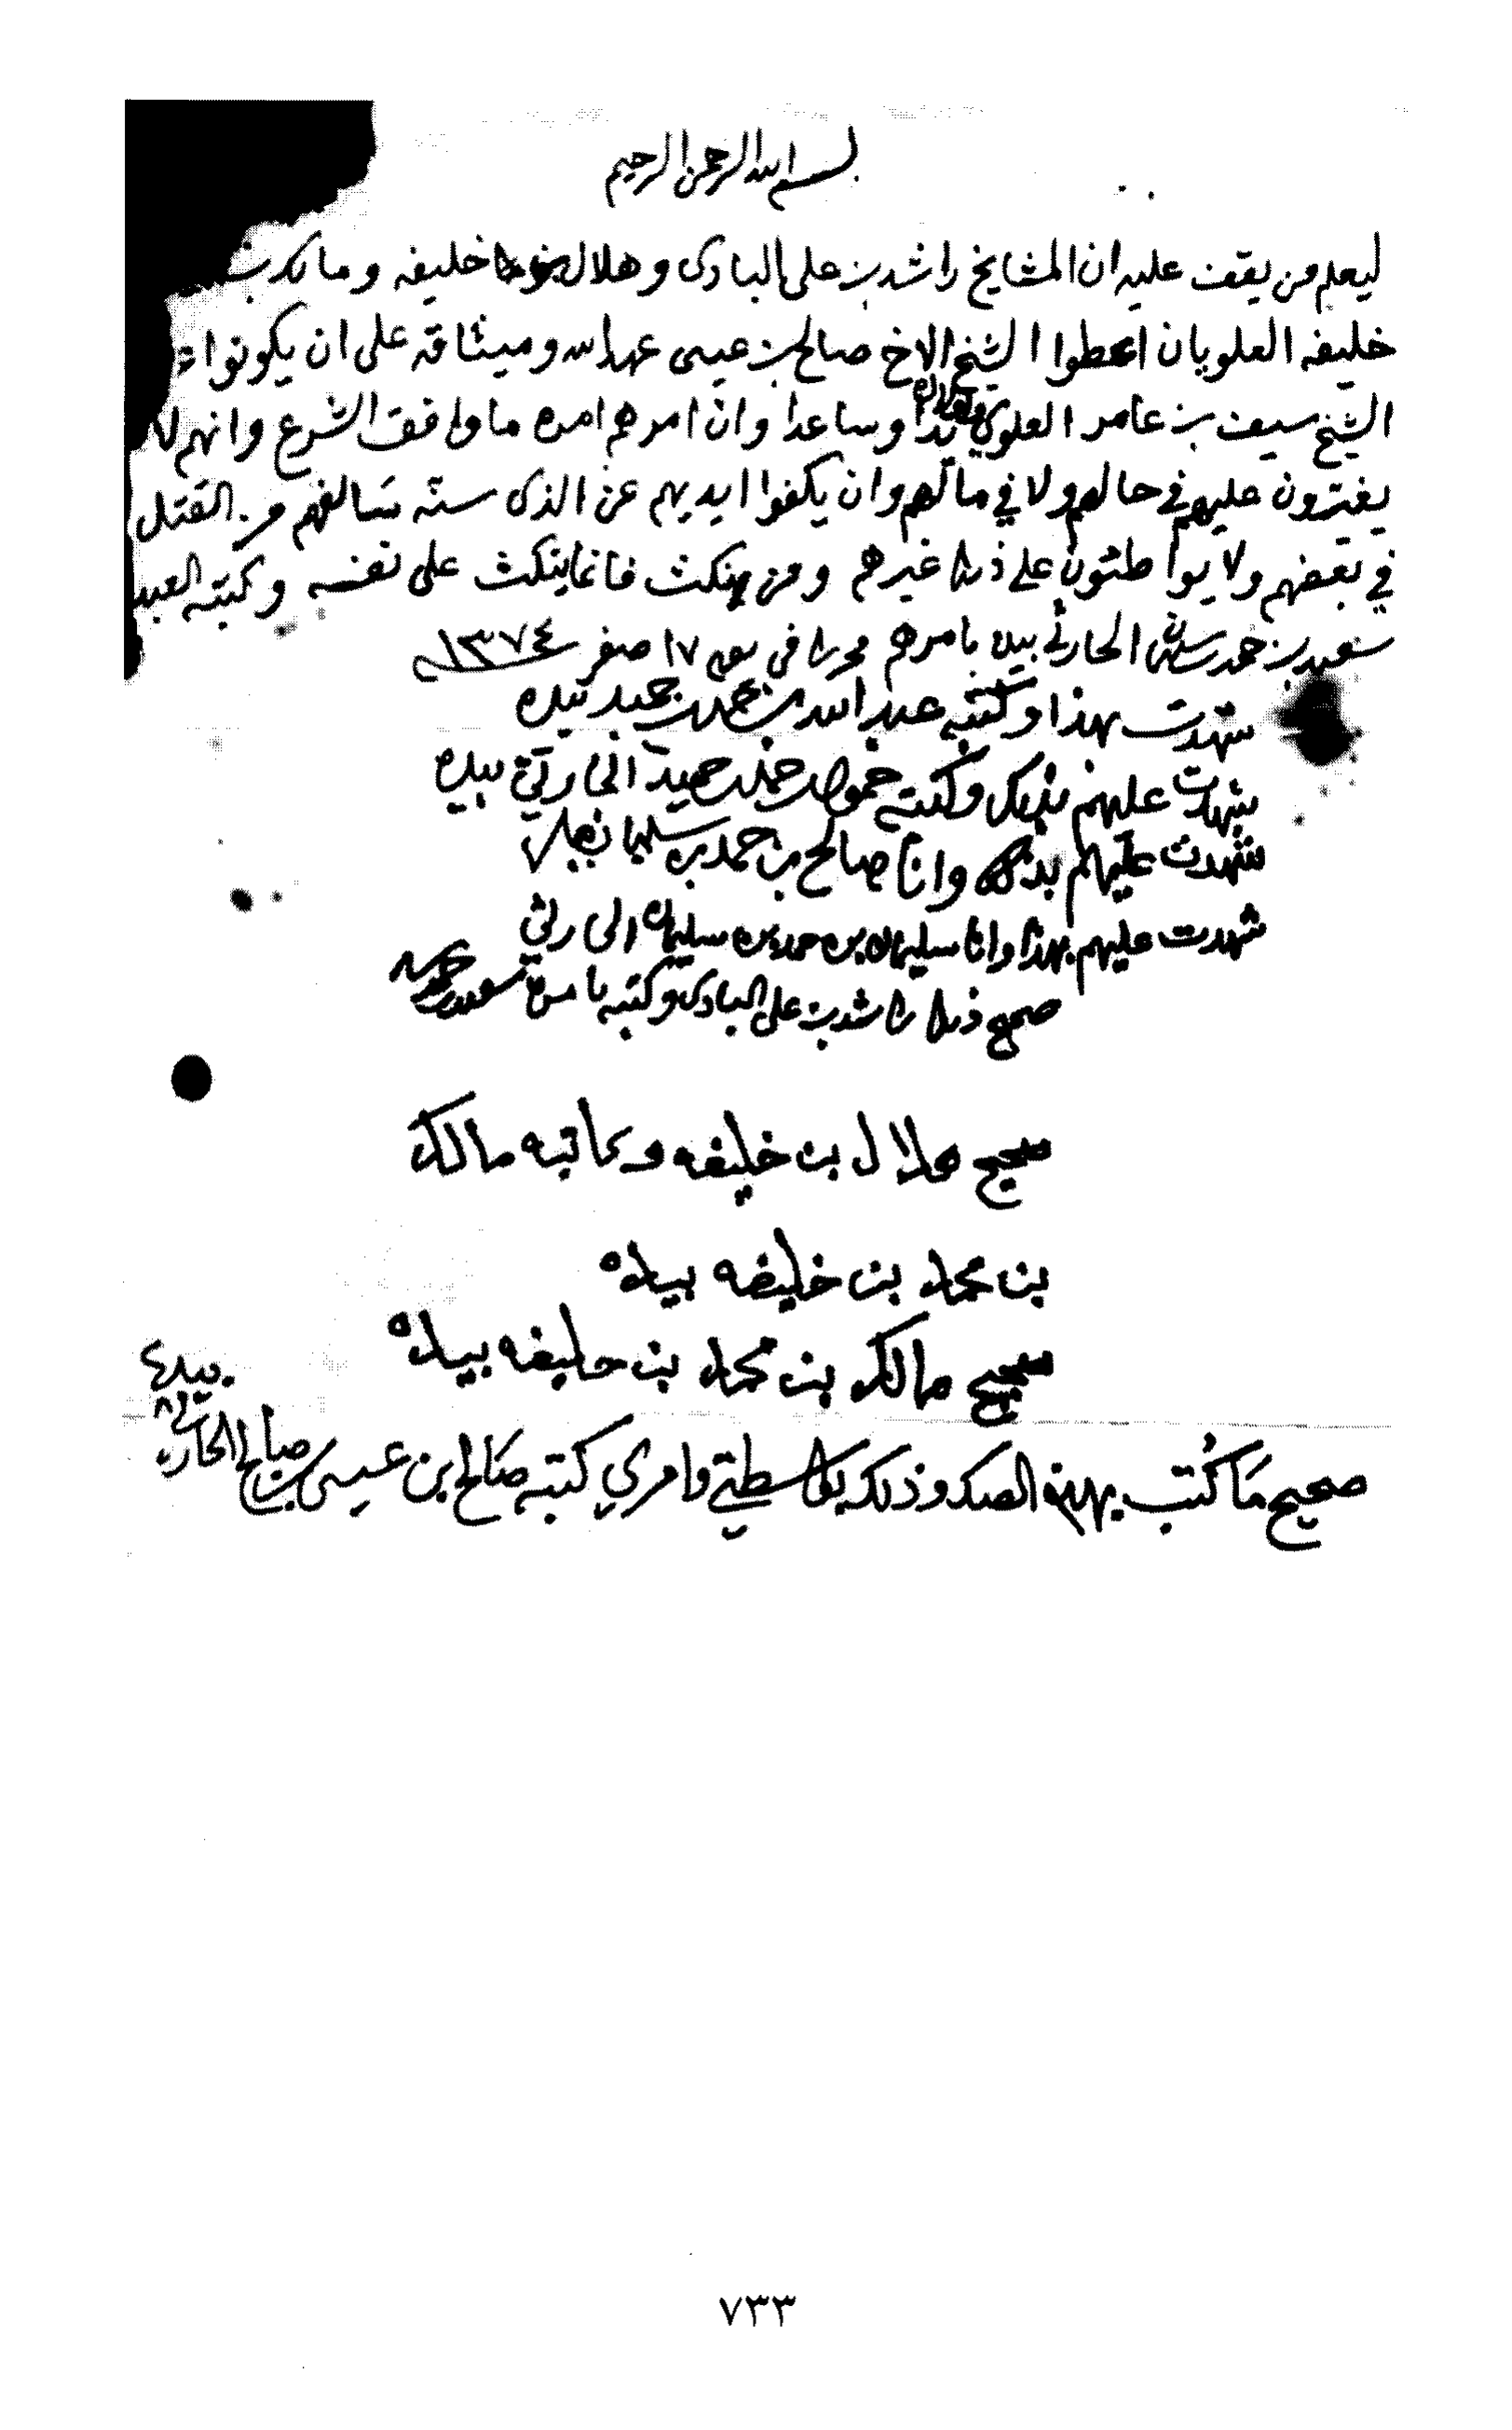 بسم الله الرحمن الرحيم
ليعلم من يقف عليه ان المشايخ راشد بن علي البادى وهلال بن خليفه ومالك بن
خليفه العلويان اعطوا الشيخ الاخ صالح بن عيسى عهد الله وميثاقه على ان يكونوا
الشيخ سيف بن عامر العلوي يدا وساعدا وان امرهم امره ما وافق الشرع وانهم لا
يغترون عليهم في حالهم ولا في مالهم وان يكفوا ايديهم عن الذى سنته سالفهم من القتل
في بعضهم ولا يواطئون على ذلك غيرهم ومن ينكث فانما ينكث على نفسه وكتبه العبد
سعيد بن حمد بن سليمان الحارثي بيده بامرهم محررا في يوم ١٧ صفر ١٣٧٤
شهدت بهذا وكتبه عبدالله بن حمد بن حميد بيده
شهدت عليهم بذلك وكتبه حمود بن حمد بن حميد الحارثي بيده
شهدت عليهم بذلك وانا صالح بن حمد بن سليمان
شهدت عليهم بهذا وانا سليمان بن حمد بن سليمان الحارثي
صحيح ذلك راشد بن علي البادى وكتبه بامره سعيد بن حمد
صحيح هلال بن خليفه وكاتبه مالك
بن محمد بن خليفه بيده
صحيح مالك بن محمد بن خليفه بيده
صحيح ما كتب بهذه الصك وذلك بواسطتي وامري كتبه صالح ابن عيسى بن صالح الحارثي
بيده
٧٣٣